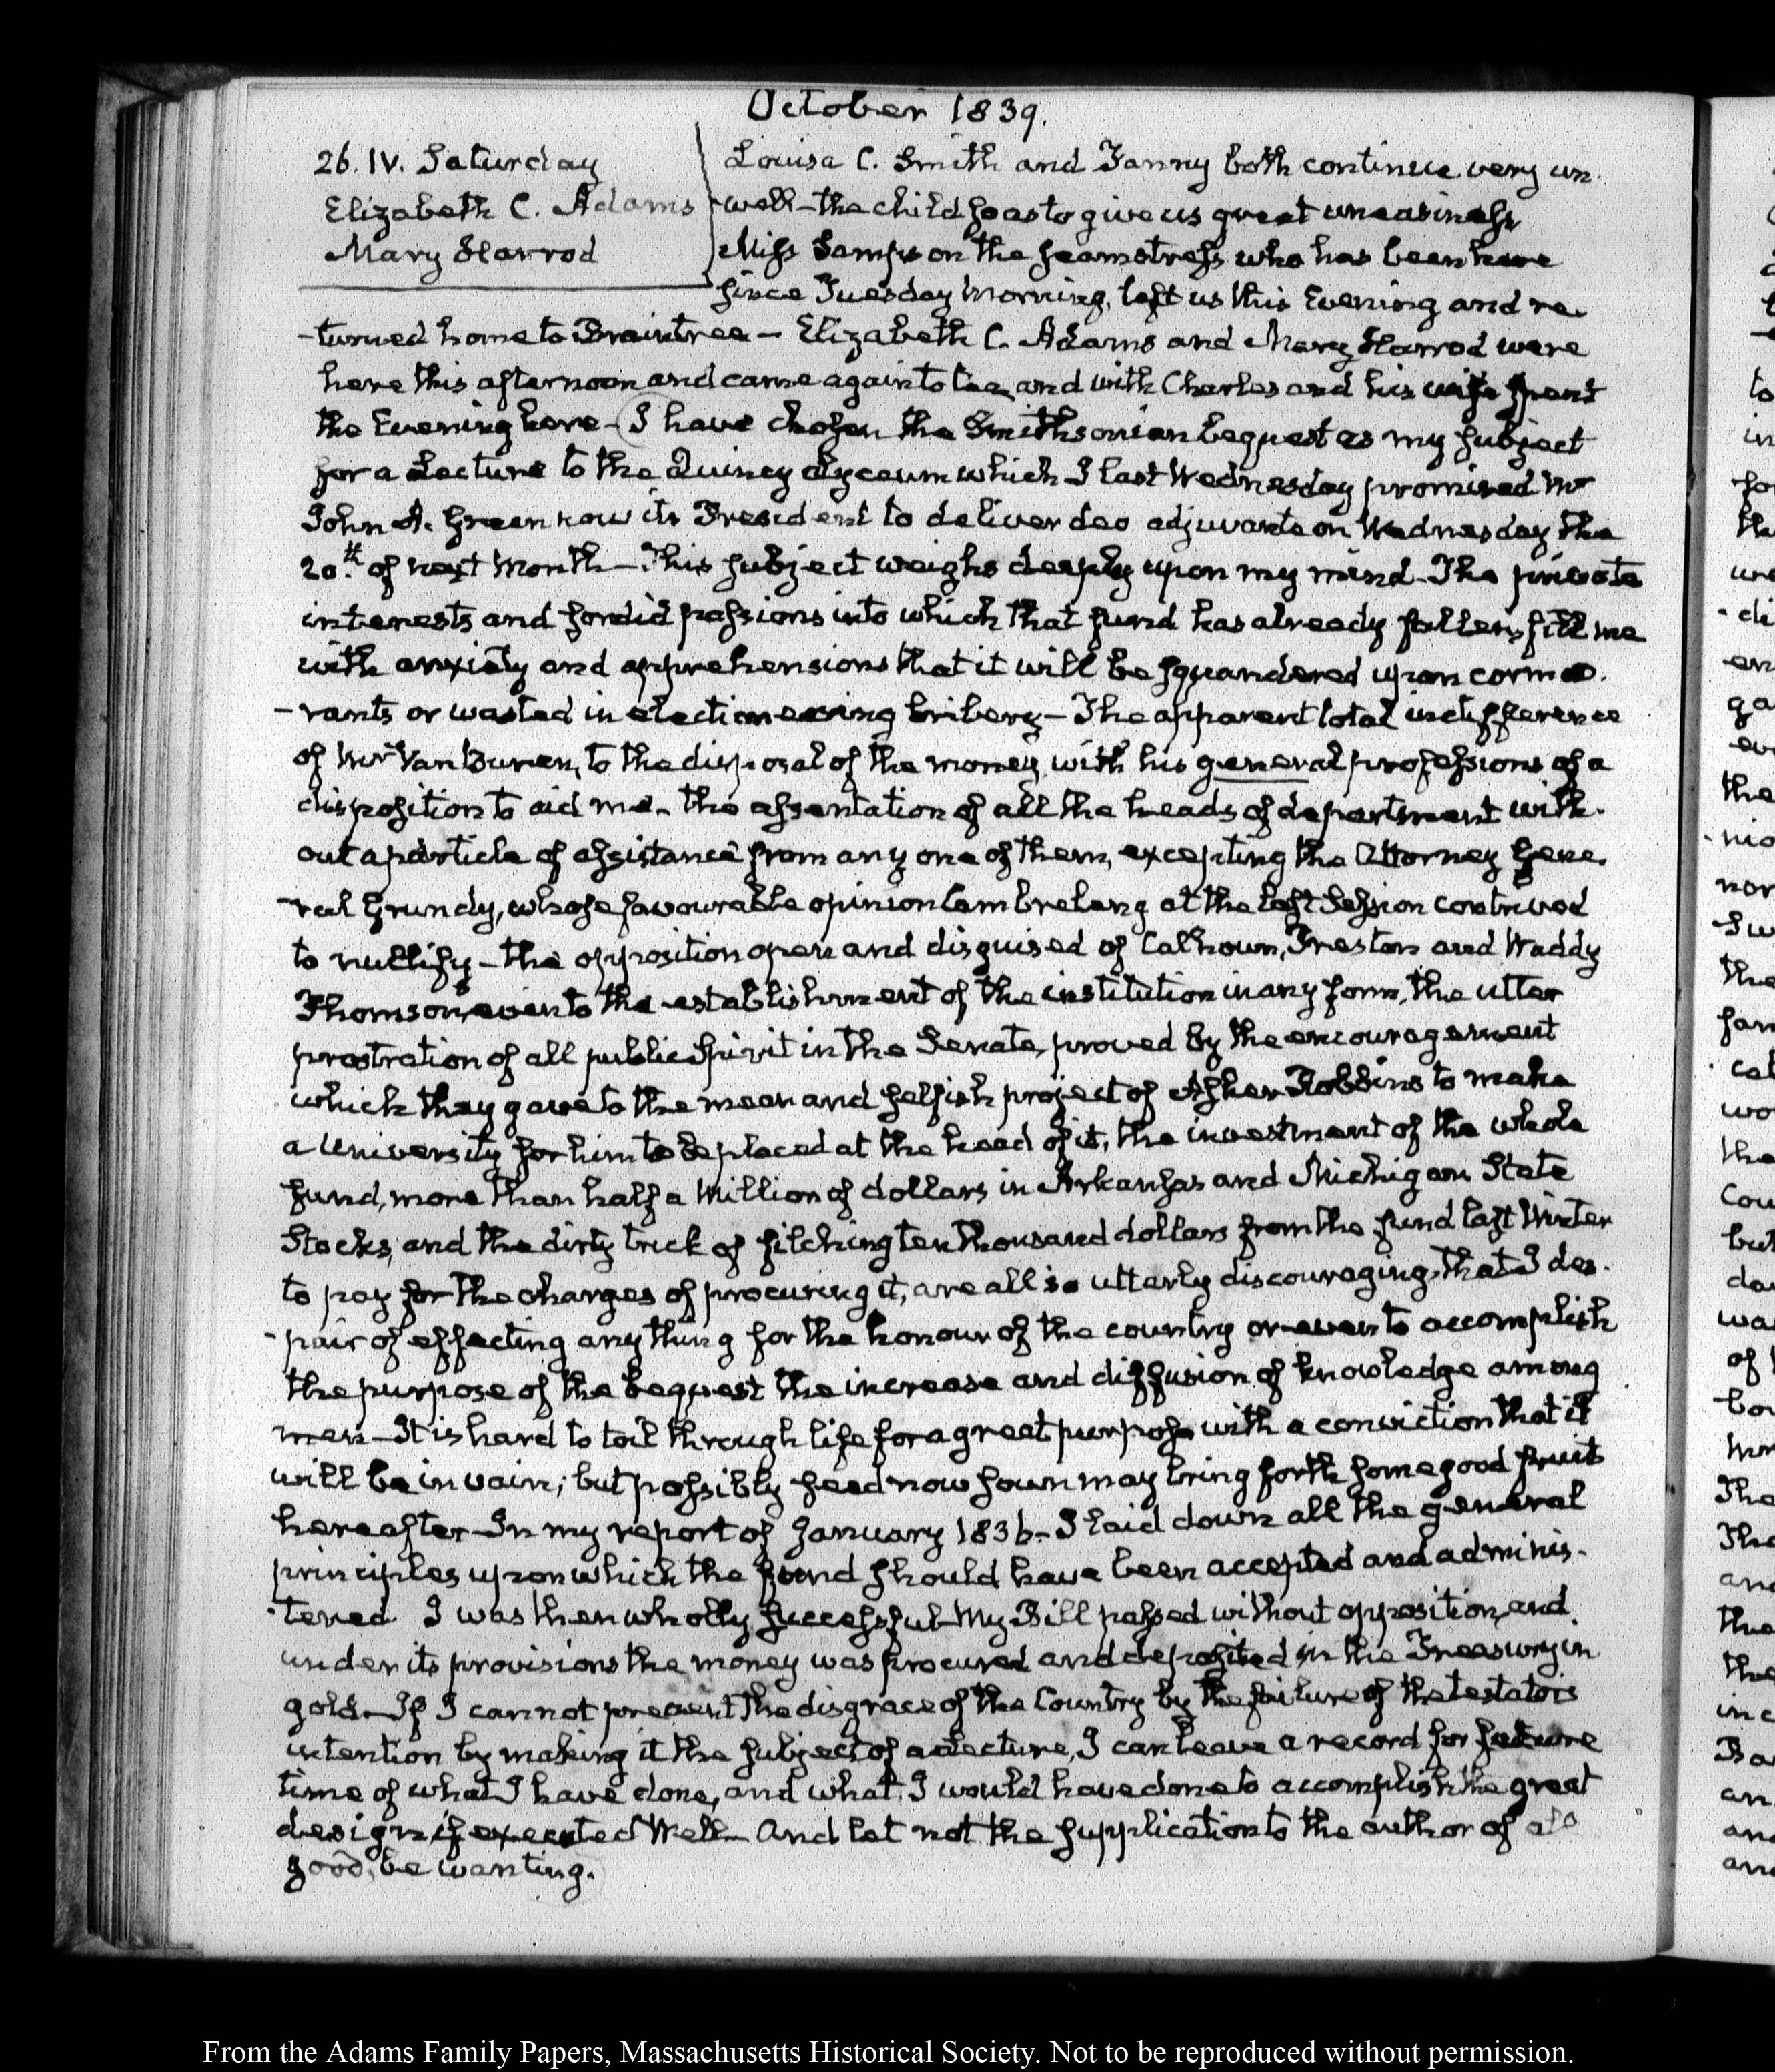 October 1839.
26. IV. Saturday
Elizabeth C. Adams
Mary Harrod
Louisa C. Smith and Fanny both continue very un-
well – the child so as to give us great uneasiness
Miss Sampson the seamstress who has been here
since Tuesday morning, left us this Evening and re-
-turned home to Braintree – Elizabeth C. Adams and Mary Harrod were
here this afternoon and came again to tea, and with Charles and his wife spent
the Evening here – I have chosen the Smithsonian bequest as my subject
for a Lecture to the Quincy Lyceum which I last Wednesday promised Mr
John A. Green now its President to deliver deo adjuvante on Wednesday the
20th. of next Month – This subject weighs deeply upon my mind. The private
interests and sordid passions into which that fund has already fallen, fill me
with anxiety and apprehensions that it will be squandered upon cormo-
-rants or wasted in electioneering bribery – The apparent total indifference
of Mr Van Buren, to the disposal of the money, with his general professions of a
disposition to aid me – the assentation of all the heads of department with-
out a particle of assistance from any one of them, excepting the Attorney Gene-
-ral Grundy, whose favourable opinion Cambreleng at the last Session contrived
to nullify – the opposition open and disguised of Calhoun, Preston and Waddy
Thomson, even to the establishment of the institution in any form, the utter
prostration of all public Spirit in the Senate, proved by the encouragement
which they gave to the mean and selfish project of Asher Robbins to make
a University for him to be placed at the head of it, the investment of the whole
fund, more than half a Million of dollars in Arkansas and Michigan State
Stocks, and the dirty trick of filching ten thousand dollars from the fund last Winter
to pay for the charges of procuring it, are all so utterly discouraging, that I des-
-pair of effecting any thing for the honour of the country or even to accomplish
the purpose of the bequest the increase and diffusion of knowledge among
men – It is hard to toil through life for a great purpose with a conviction that it
will be in vain; but possibly seed now sown may bring forth some good fruit
hereafter – In my report of January 1836 – I laid down all the general
principles upon which the fund should have been accepted and adminis-
-tered I was then wholly successful – My Bill passed without opposition, and
under its provisions the money was procured and deposited in the Treasury in
gold – If I cannot prevent the disgrace of the Country by the failure of the testators
intention by making it the subject of a Lecture, I can leave a record for future
time of what I have done, and what I would have done to accomplish the great
design if executed Well – And let not the supplication to the author of all
good, be wanting.
From the Adams Family Papers, Massachusetts Historical Society. Not to be reproduced without permission.